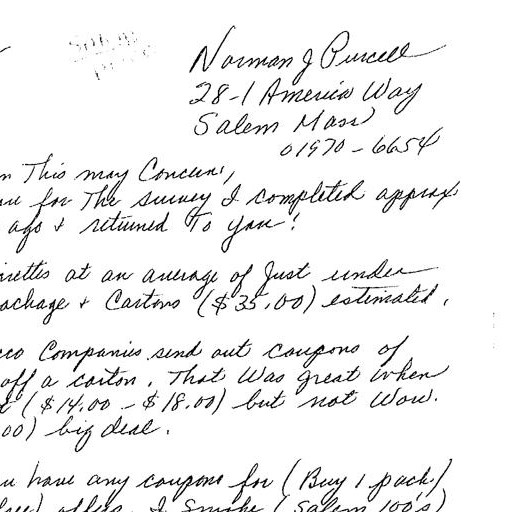 Norman J Purcell
28-1 America Way
Salem Mass
01970-6654
This may Concern,
for The survey I completed approx.
ago + returned To you!
at an average of Just under
+ Cartons ($35.00) estimated.
Companies send out coupons of
off a carton. That Was great when
($14.00 - $18.00) but not Now.
00) big deal.
have any coupons for (Buy 1 pack/
free) offers. I Smoke (Salem 100's)